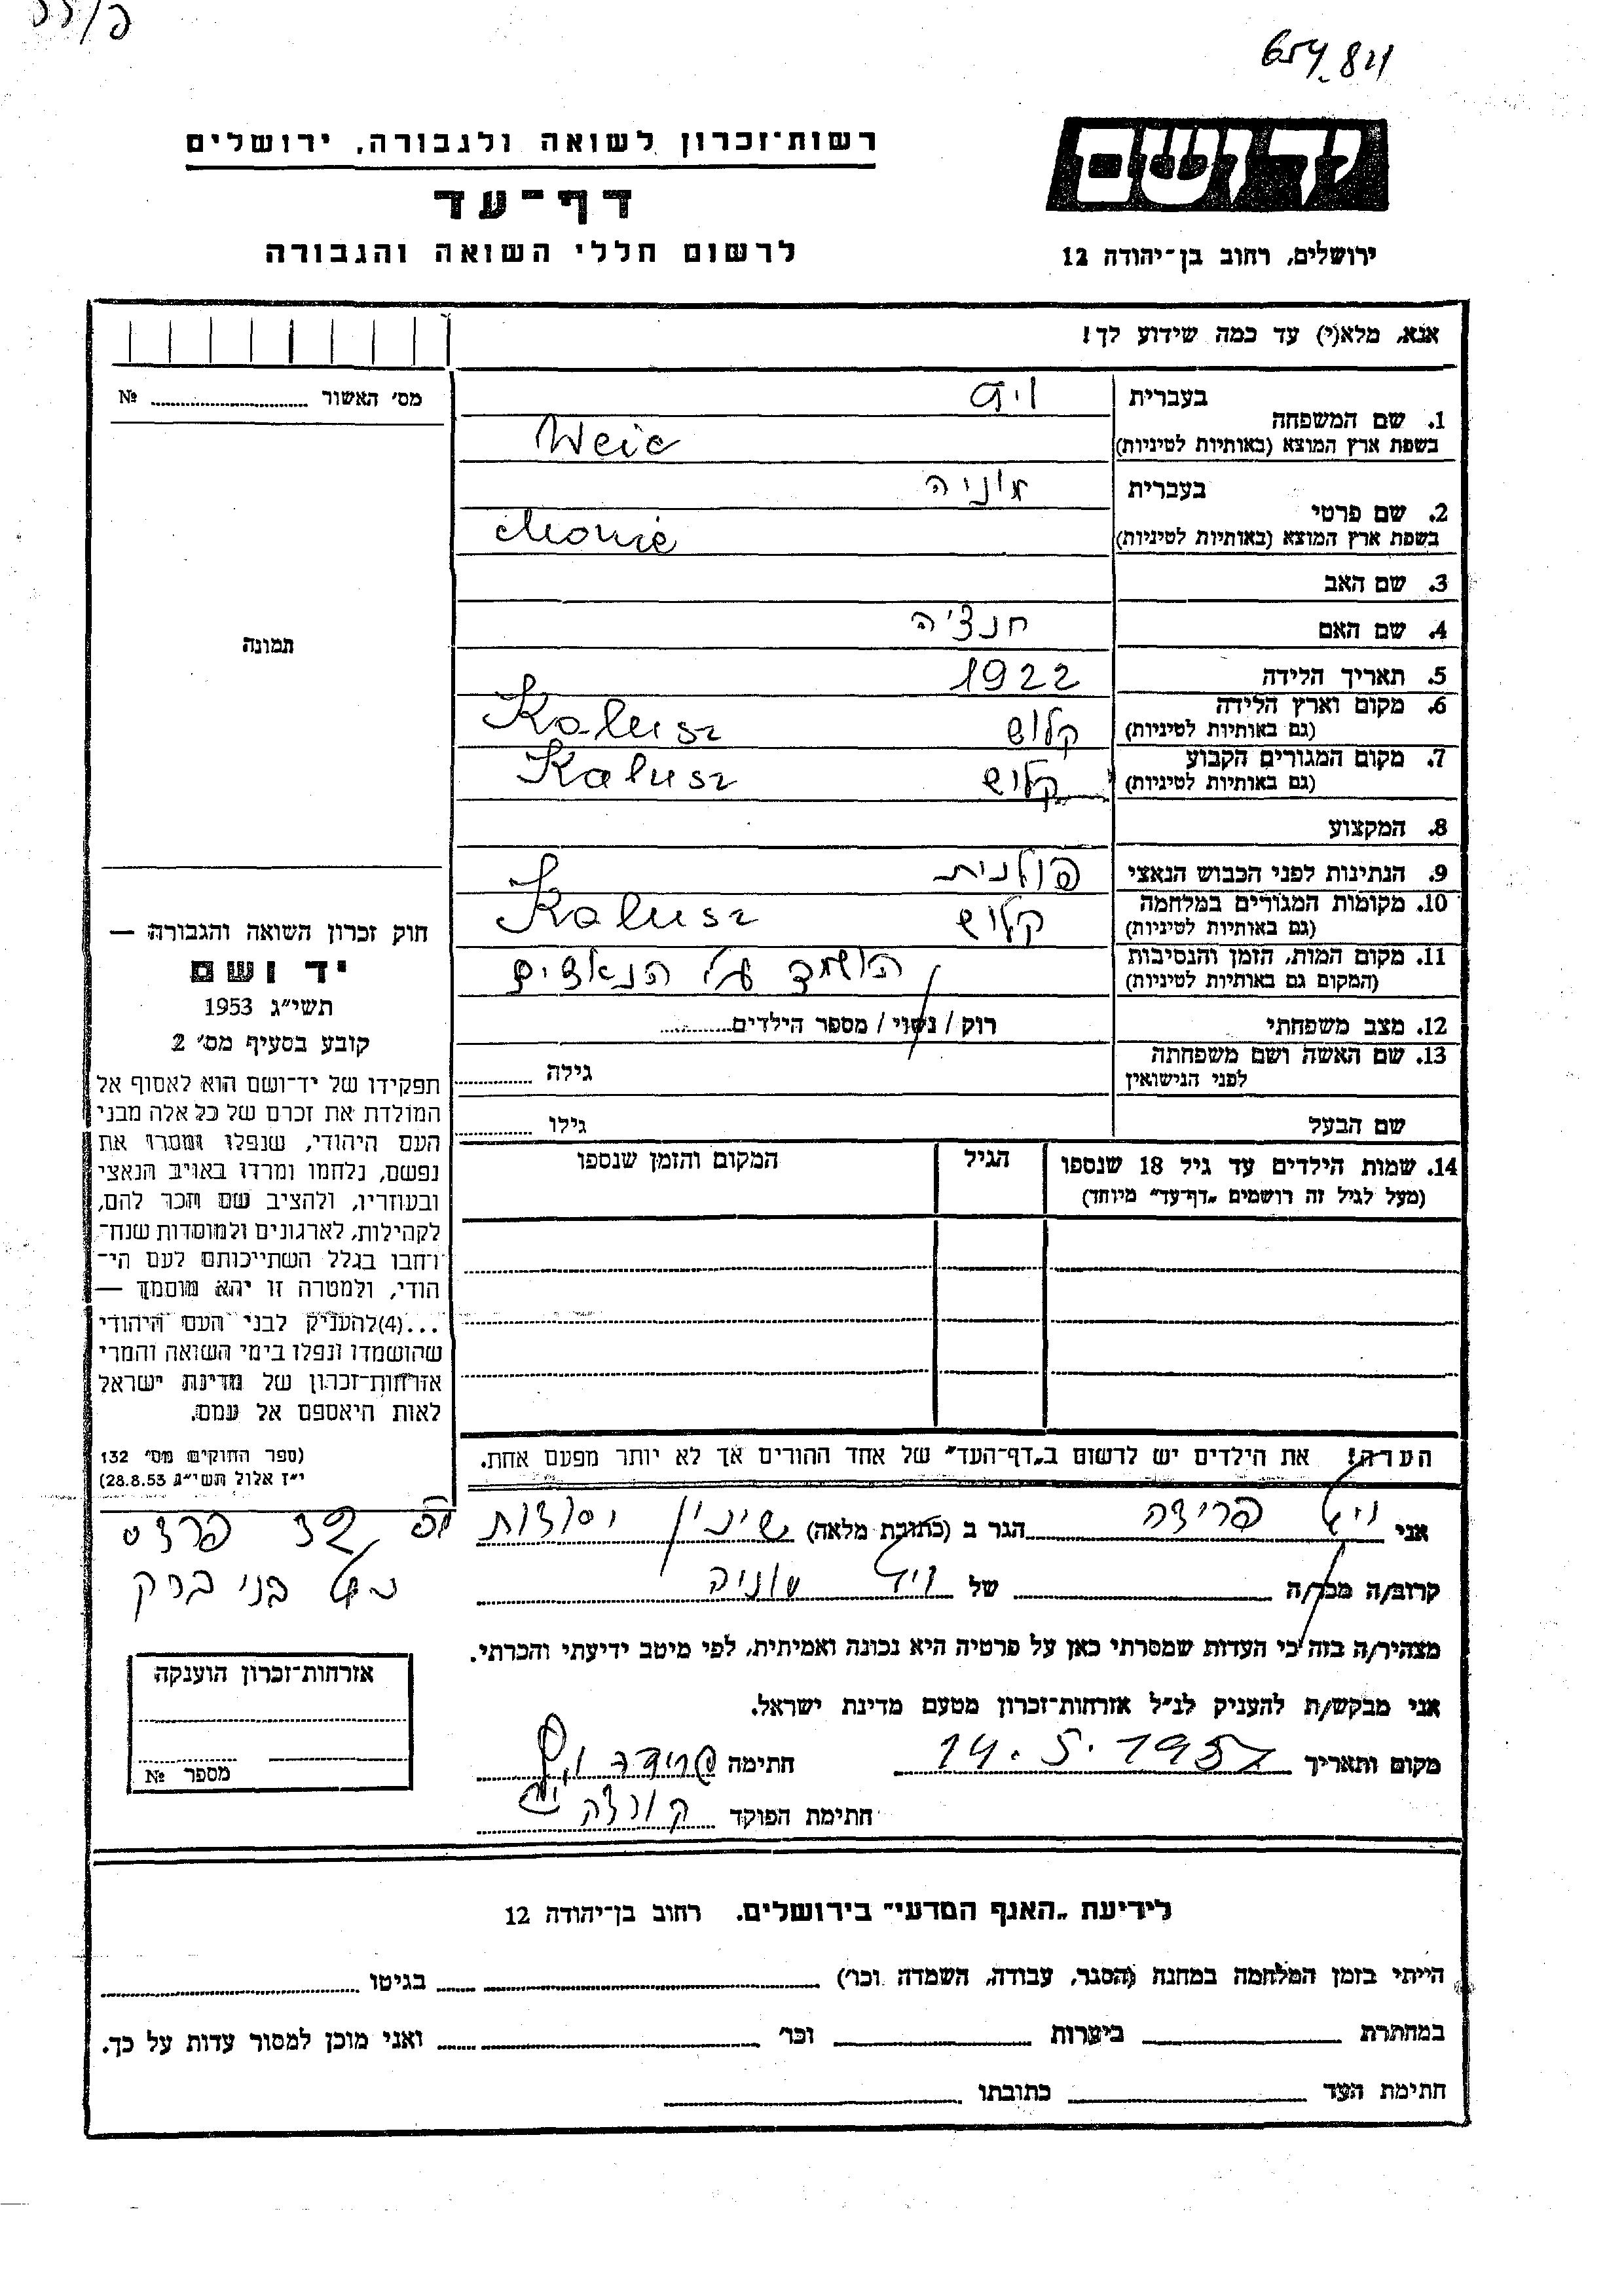 654 811
יד ושם
רשות־זכרון לשואה ולגבורה, ירושלים
דף־עד
לרשום חללי השואה והגבורה
ירושלים, רחוב בן־יהודה 12
אנא, מלא(י) עד כמה שידוע לך!
מס׳ האשור № 
1. שם המשפחה
בעברית
בשפת ארץ המוצא (באותיות לטיניות)
2. שם פרטי
בעברית מוניה
בשפת ארץ המוצא (באותיות לטיניות)
3. שם האב
4. שם האם חנצ׳יה
5. תאריך הלידה 1922
6. מקום וארץ הלידה קלוש Kalusz
(גם באותיות לטיניות)
7. מקום המגורים הקבוע קלוש Kalusz
(גם באותיות לטיניות)
8. המקצוע
9. הנתינות לפני הכבוש הנאצי פולנית
10. מקומות המגורים במלחמה קלוש Kalusz
(גם באותיות לטיניות)
11. מקום המות, הזמן והנסיבות הושמד ע״י הנאצים
(המקום גם באותיות לטיניות)
12. מצב משפחתי רוק / נשוי / מספר הילדים
13. שם האשה ושם משפחתה גילה
לפני הנישואין
שם הבעל גילו
14. שמות הילדים עד גיל 18 שנספו הגיל המקום והזמן שנספו
(מעל לגיל זה רושמים „דף־עד״ מיוחד)
הערה! את הילדים יש לרשום ב„דף־העד״ של אחד ההורים אך לא יותר מפעם אחת.
תמונה
חוק זכרון השואה והגבורה —
יד ושם
תשי״ג 1953
קובע בסעיף מס׳ 2
תפקידו של יד־ושם הוא לאסוף אל
המולדת את זכרם של כל אלה מבני
העם היהודי, שנפלו ומסרו את
נפשם, נלחמו ומרדו באויב הנאצי
ובעוזריו, ולהציב שם וזכר להם,
לקהילות, לארגונים ולמוסדות שנח־
רחבו בגלל השתייכותם לעם הי־
הודי, ולמטרה זו יהא מוסמך —
...(4)להעניק לבני העם היהודי
שהושמדו ונפלו בימי השואה והמרי
אזרחות־זכרון של מדינת ישראל
לאות היאספם אל עמם.
(ספר החוקים מס׳ 132
י״ז אלול תשי״ג 28.8.53)
אני פרידה הגר ב (כתובת מלאה) שיכון יסודות
32 פרדס
בני ברק
קרוב/ה מכר/ה של מוניה
מצהיר/ה בזה כי העדות שמסרתי כאן על פרטיה היא נכונה ואמיתית, לפי מיטב ידיעתי והכרתי.
אני מבקש/ת להעניק לנ״ל אזרחות־זכרון מטעם מדינת ישראל.
מקום ותאריך 14.5.1957 חתימה פרידה
חתימת הפוקד
אזרחות־זכרון הוענקה
מספר №
לידיעת „האגף המדעי״ בירושלים. רחוב בן־יהודה 12
הייתי בזמן המלחמה במחנה (הסגר, עבודה, השמדה וכו׳) בגיטו
במחתרת ביערות וכו׳ ואני מוכן למסור עדות על כך.
חתימת העד כתובתו